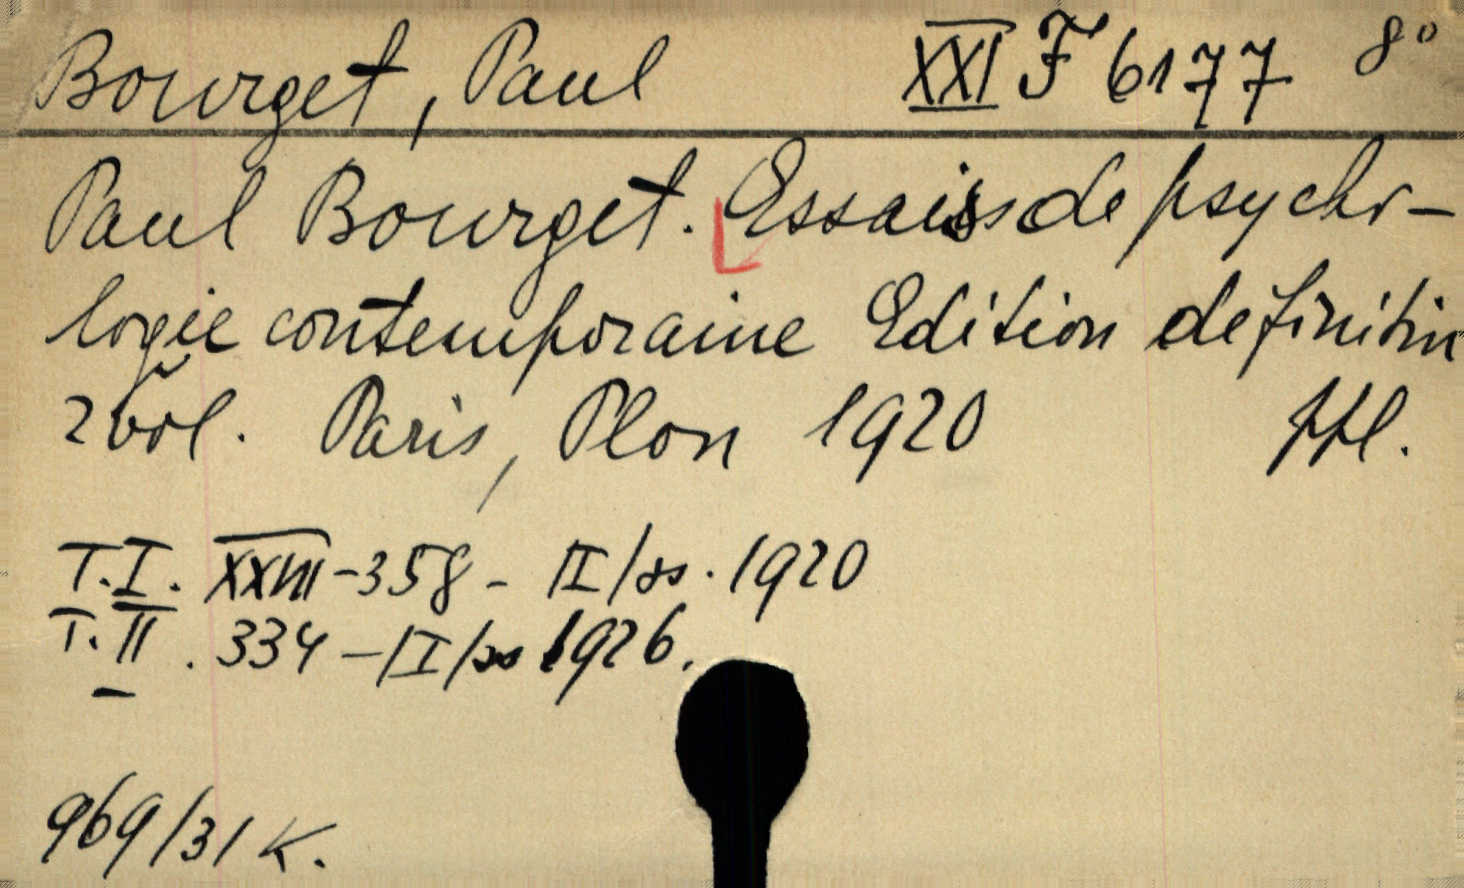 Bourget, Paul XXI F 6177 8°
Paul Bourget. Essais de psycho-
logie contemporaine Edition definitiv
2 vol. Paris, Plon 1920 ppl.
T.I. XXVIII-358- II/ss. 1920
T.II. 334 - II/ss 1926.
969/31 K.